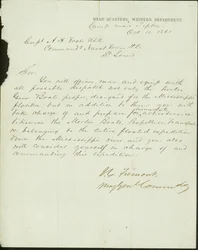 HEAD QUARTERS, WESTERN DEPARTMENT,
Camp near Tipton
Oct 11 1861
Capt A H Foote USN
Commandg Naval Forces
St Louis
Sir
You will officer man and equip with
all possible despatch not only the
Gun Boats proper designed for the Mississippi
flotilla but in addition to them you will
take charge of and prepare for
the Mortar Boats, Propellers Transports
belonging to the entire floating expedition
down the Mississippi river and you also
will consider yourself in charge of and
commanding this expedition
J C Frémont
Maj Genl Commdg